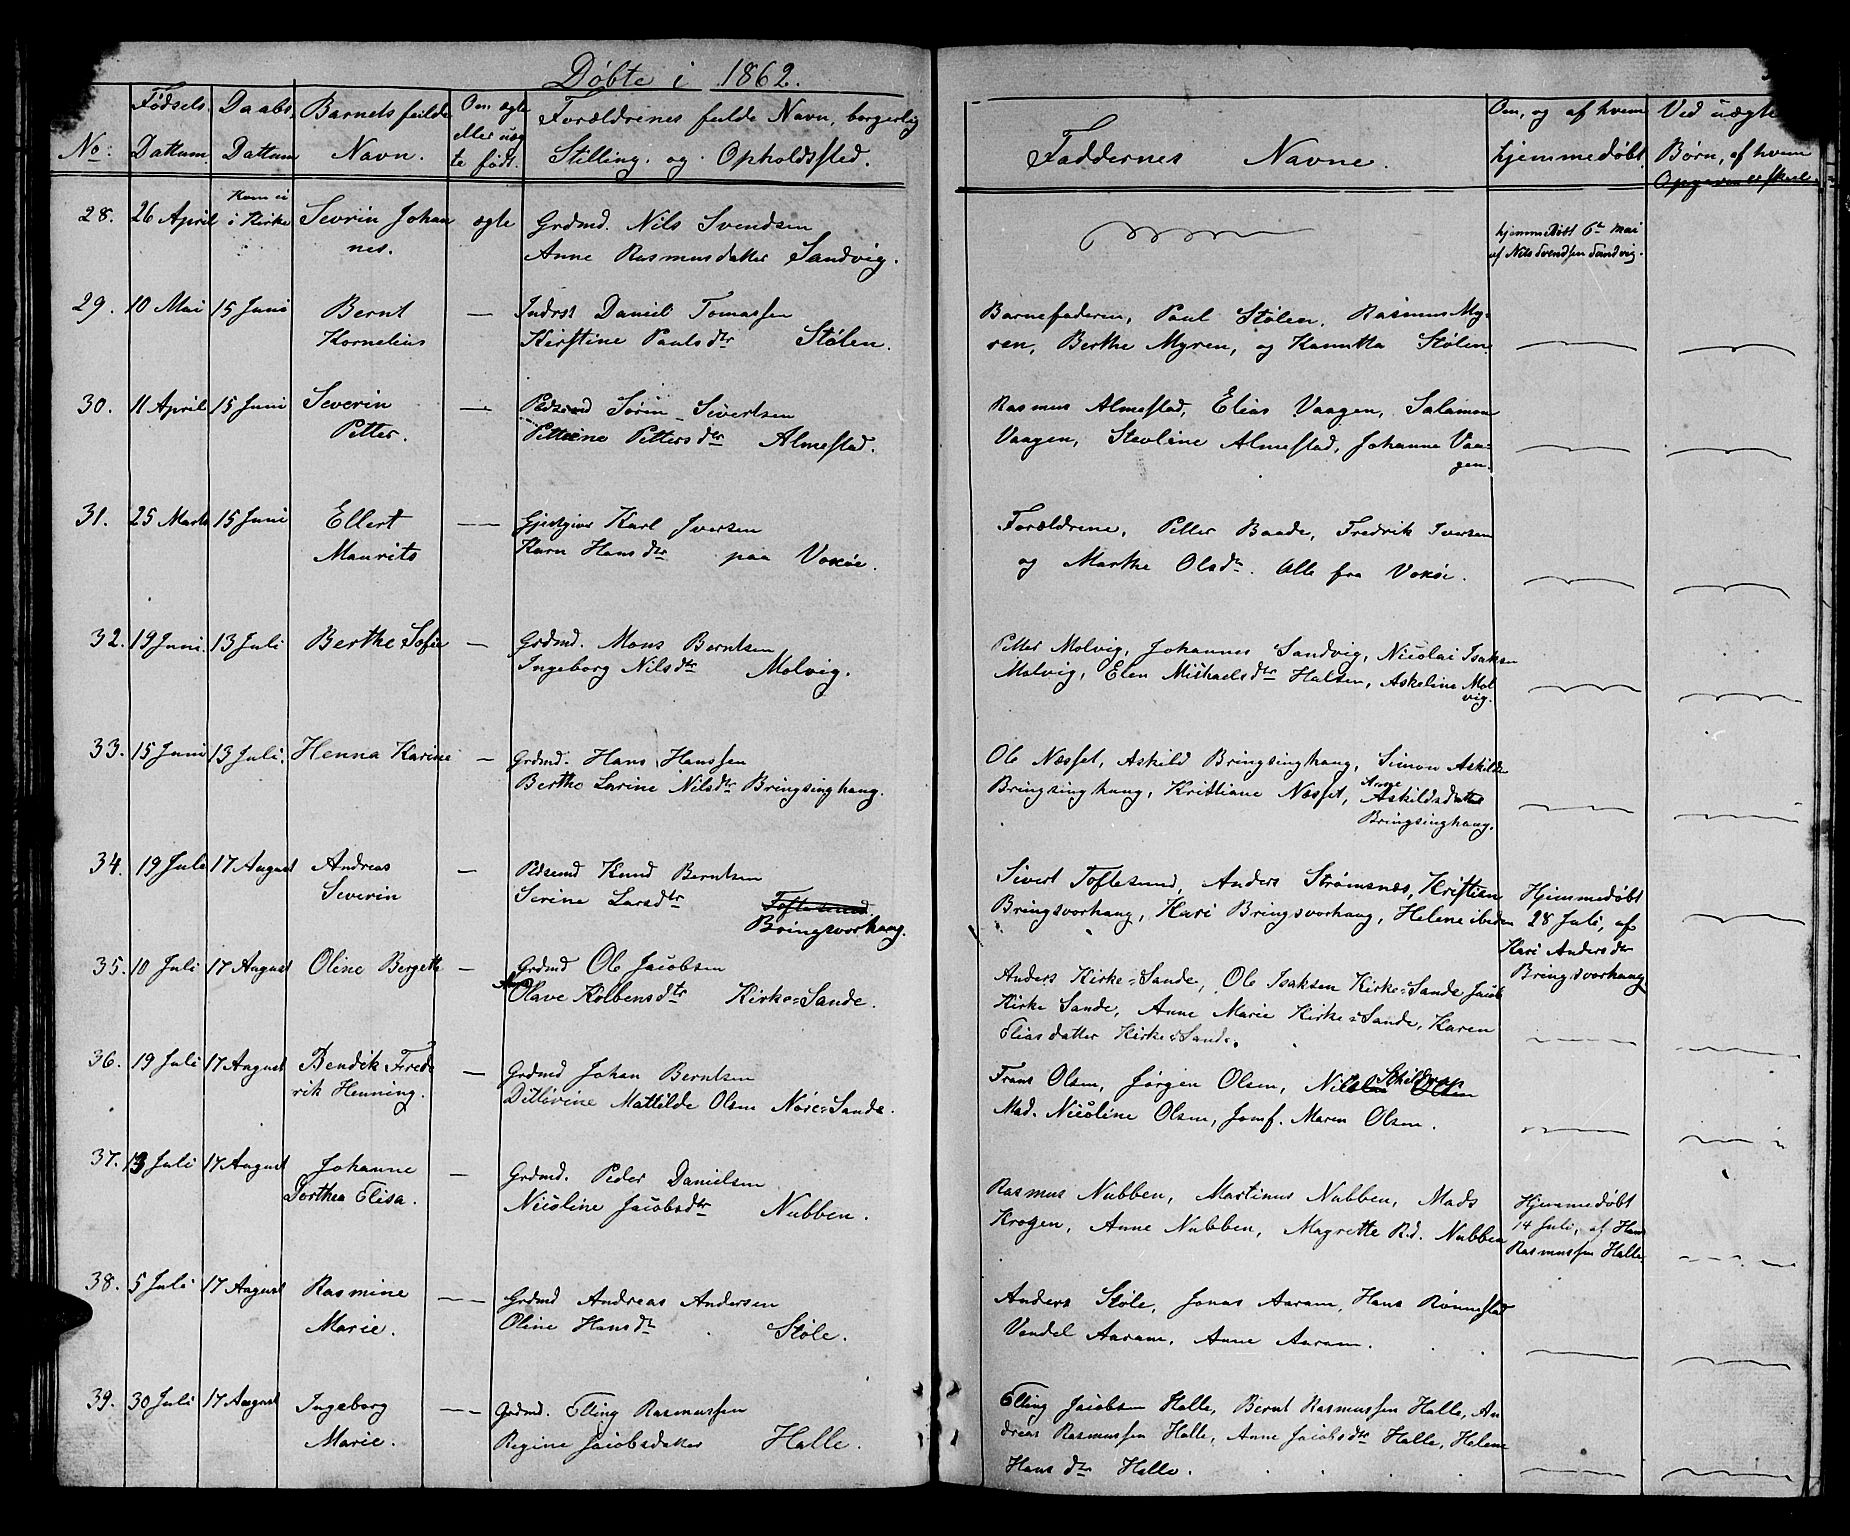 Døbte i 1862.
No: Fødsels Dattum Daabs Dattum Barnets fulde Navn. Om ægte eller uægte født. Forældrenes fulde Navn, borgerlig Stilling. og Opholdssted. Faddernes Navne. Om, og af hvem hjemmedøbt Ved uægte Børn, af hvem
28. 26 April Kom ei i Kirke Sevrin Johan ægte Grdmd. Nils Svendsen hjemmedøbt 6te Mai
nes. Anne Rasmusdatter Sandvig. af Nils Svendsen Sandvig.
29. 10 Mai 15 Juni Bernt — Indrst Daniel Tomassen Barnefaderen, Paul Stølen, Rasmus My-
Kornelius Kirstine Paulsdtr Stølen. ren, Berthe Myren, og Kanutta Stølen.
30. 11 April 15 Juni Severin — Pdsmd Sørin Sivertsen Rasmus Almestad, Elias Vaagen, Salamon
Petter. Pettrine Pettersdtr Almestad. Vaagen, Stevline Almestad, Johanne Vaa-
gen.
31. 25 Marts 15 Juni Ellert — Gjestgiver Karl Iversen Forældrene, Petter Baade, Fredrik Iversen
Maurits Karn Hansdtr paa Voxøe. og Marthe Olsdtr. Alle fra Voxøe.
32. 19 Juni. 13 Juli Berthe Sofie — Grdmd. Mons Berntsen Petter Molvig, Johannes Sandvig, Nicolai Isaksen
Ingeborg Nilsdtr Molvig. Molvig, Elen Michaelsdtr Halsen, Askeline Mol
vig.
33. 15 Juni 13 Juli. Henna Karine — Grdmd. Hans Hanssen Ole Næsset, Askild Bringsinghaug, Simon Askilds
Berthe Larine Nilsdtr Bringsinghaug. Bringsinghaug, Kristiane Næsset, Anne Askildsdatter
Bringsinghaug.
34. 19 Juli 17 August Andreas — Pdsmd Knud Berntsen Sivert Toftesund, Anders Strømsnes, Kristian Hjemmedøbt
Severin Serine Larsdtr Toftesund Bringsvorhaug, Kari Bringsvorhaug, Helene ibidem 28 Juli, af
Bringsvorhaug. Kari Andersdtr
Bringsvorhaug
35. 10 Juli 17 August Oline Bergette — Grdmd Ole Jacobsen Anders Kirke-Sande, Ole Isaksen Kirke-Sande Jacob
Olave Kolbensdtr Kirke-Sande. Kirke Sande, Anne Marie Kirke-Sande, Karen
Eliasdatter Kirke-Sande.
36. 19 Juli 17 August Bendik Fred — Grdmd Johan Berntsen Frans Olsen, Jørgen Olsen, Olsen
rik Henning. Ditlevine Mattilde Olsen Nøre-Sande. Mad. Nicoline Olsen, Jomf. Maren Olsen.
37. 13 Juli 17 August Johanne — Grdmd. Peder Danielsen Rasmus Nubben, Martinus Nubben, Mads Hjemmedøbt
Dorthea Elisa. Nicoline Jacobsdtr Nubben. Krogen, Anne Nubben, Magrette R.d. Nubben 14 Juli, af Hans
Rasmussen Halle.
38. 5 Juli 17 August Rasmine — Grdmd Andreas Andersen Anders Støle, Jonas Aaram, Hans Rønnestad
Marie. Oline Hansdtr Støle. Vendel Aaram, Anne Aaram.
39. 30 Juli 17 August Ingeborg — Grdmd. Elling Rasmussen Elling Jacobsen Halle, Bernt Rasmussen Halle, An
Marie. Regine Jacobsdatter Halle. dreas Rasmussen Halle, Anne Jacobsdtr Halle, Helene
Hansdtr Halle.